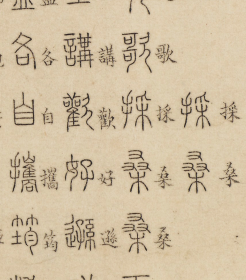 採採桑桑
歌歌採採桑桑桑桑
講講歡歡好好遜遜
各各自自攜攜筠筠